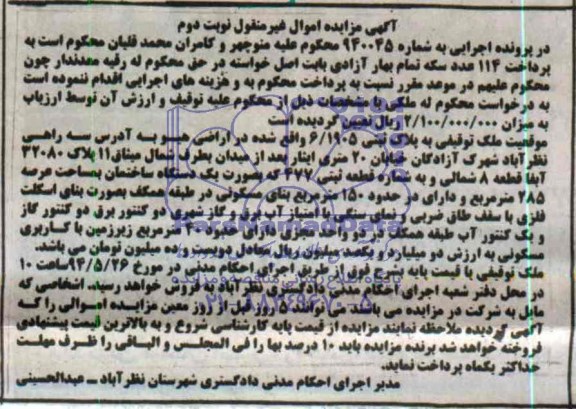 آگهی مزایده اموال غیرمنقول نوبت دوم
در پرونده اجرایی به شماره ۹۴۰۰۴۵ محکوم علیه منوچهر و کامران محمد قلیان محکوم است به
پرداخت ۱۱۴ عدد سکه تمام بهار آزادی بابت اصل خواسته در حق محکوم له رقیه معدندار چون
محکوم علیهم در موعد مقرر نسبت به پرداخت محکوم به و هزینه های اجرایی اقدام ننموده است
به درخواست محکوم له ملکی با مشخصات ذیل از محکوم علیه توقیف و ارزش آن توسط ارزیاب
به میزان ۲/۱۰۰/۰۰۰/۰۰۰ ریال تعیین گردیده است
موقعیت ملک توقیفی به پلاک ثبتی ۶/۱۹۰۵ واقع شده در اراضی به آدرس سه راهی
نظرآباد شهرک آزادگان خیابان ۲۰ متری ایثار بعد از میدان بطرف شمال میثاق۱۱ پلاک ۳۲۰۸۰
آبفا قطعه ۸ شمالی و به شماره قطعه ثبتی ۴۷۷ که بصورت یک دستگاه ساختمان بمساحت عرصه
۲۸۵ مترمربع و دارای در حدود ۱۵۰ مترمربع بنای مسکونی در طبقه همکف بصورت بنای اسکلت
فلزی با سقف طاق ضربی و نمای سنگی با امتیاز آب برق و گاز شهری دو کنتور برق دو کنتور گاز
و یک کنتور آب طبقه همکف در دو واحد مجزی دارای حدود ۴۰ مترمربع زیرزمین با کاربری
مسکونی به ارزش دو میلیارد و یکصد میلیون ریال معادل دویست و ده میلیون تومان می باشد.
ملک توقیفی با قیمت پایه بشرح فوق از طریق اجرای احکام مدنی در مورخ ۹۴/۵/۲۶ساعت ۱۰
در محل دفتر شعبه اجرای احکام مدنی دادگستری نظر آباد به فروش خواهد رسید. اشخاصی که
مایل به شرکت در مزایده می باشند می توانند ۵ روز قبل از روز معین مزایده اموالی را که
آگهی گردیده ملاحظه نمایند مزایده از قیمت پایه کارشناسی شروع و به بالاترین قیمت پیشنهادی
فروخته خواهد شد برنده مزایده باید ۱۰ درصد بها را فی المجلس و الباقی را ظرف مهلت
حداکثر یکماه پرداخت نماید.
مدیر اجرای احکام مدنی دادگستری شهرستان نظرآباد ـ عبدالحسینی